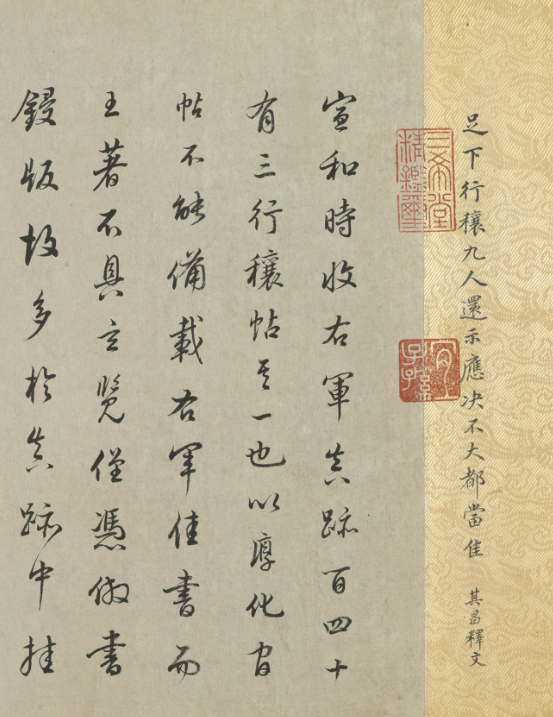 足下行穰九人還示應決不大都當佳 其昌釋文
三希堂精鑑璽
宜子孫
宣和時收右軍真跡百四十
有三行穰帖其一也以淳化官
帖不能備載右軍佳書而
王著不具玄覽僅憑倣書
鋟版故多於真跡中挂